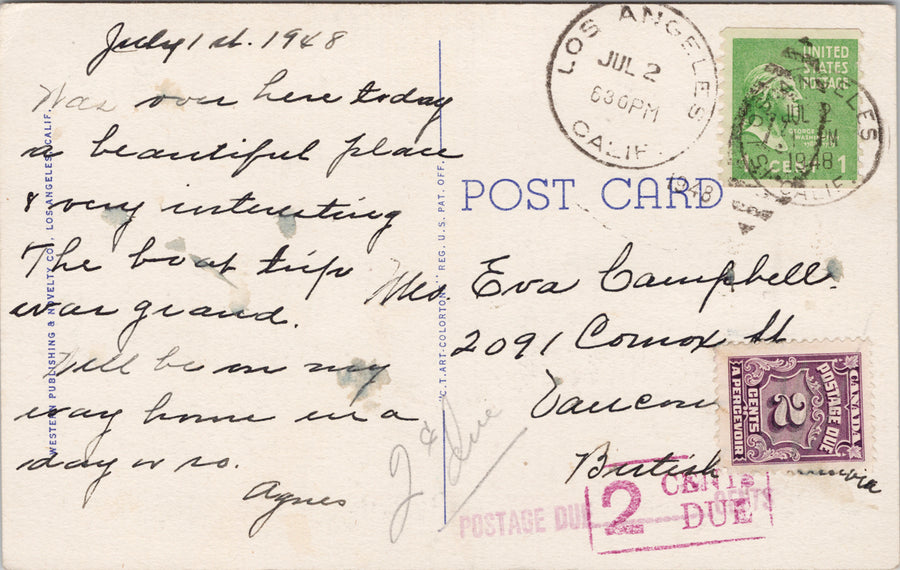 July 1st. 1948
Was over here today
a beautiful place
& very interesting
The boat trip
was grand.
Will be on my
way home in a
day or so.
Agnes
WESTERN PUBLISHING & NOVELTY CO., LOS ANGELES, CALIF.
"C.T. ART-COLORTONE" REG. U.S. PAT. OFF.
POST CARD
LOS ANGELES
JUL 2
630PM
CALIF.
1948
UNITED
STATES
POSTAGE
GEORGE
CENT 1
JUL 2
PM
1948
CALIF
Mrs. Eva Campbell.
2091 Comox St
Vancou
British
CANADA
POSTAGE DUE
2
CENTS
A PERCEVOIR
due
POSTAGE DUE CENTS
2 CENTS
DUE